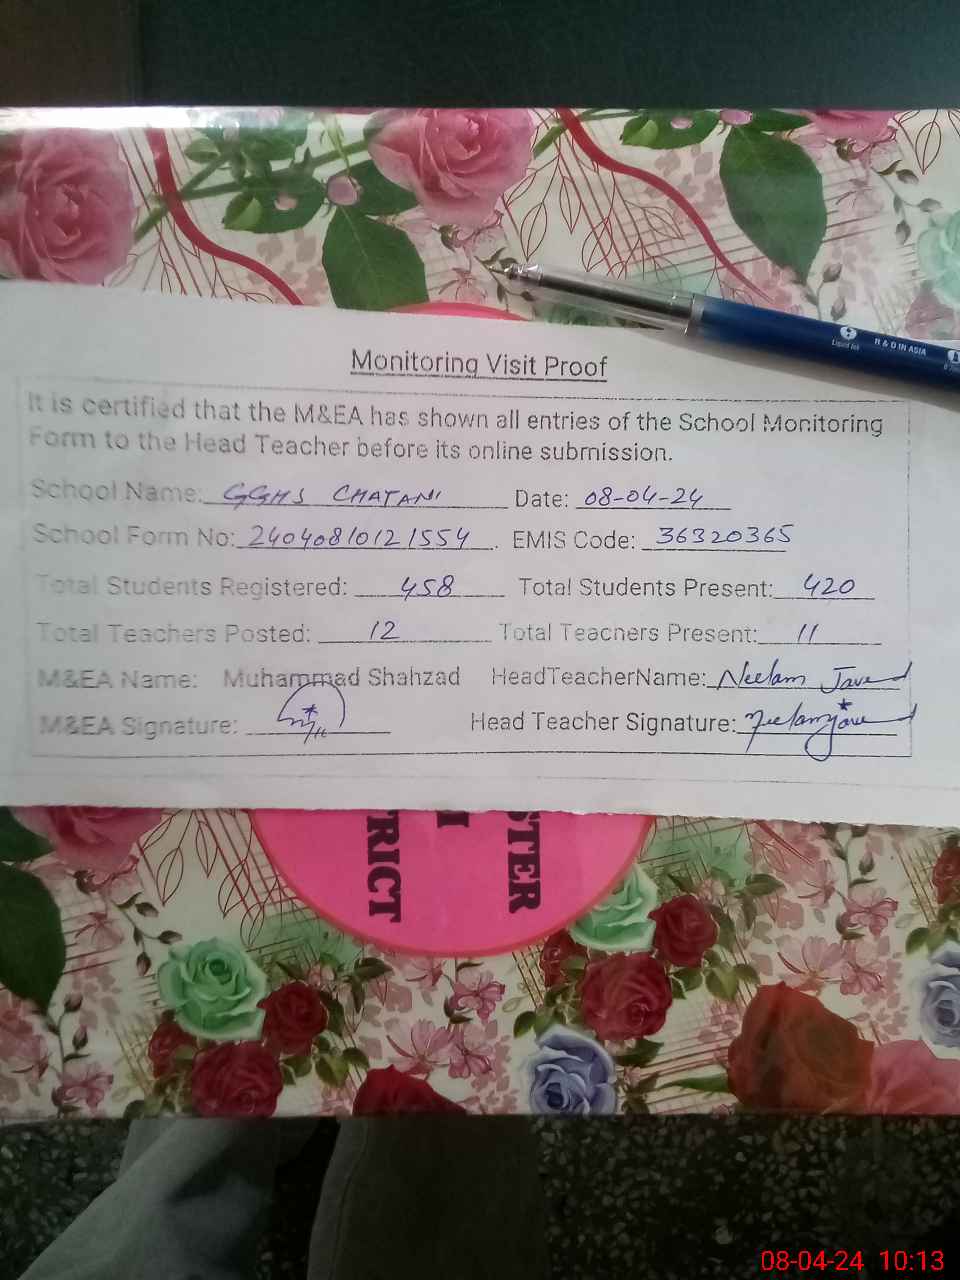 Liquid Ink R & D IN ASIA
Monitoring Visit Proof
It is certified that the M&EA has shown all entries of the School Monitoring
Form to the Head Teacher before its online submission.
School Name: GGHS CHATANI Date: 08-04-24
School Form No: 2404080121554. EMIS Code: 36320365
Total Students Registered: 458 Total Students Present: 420
Total Teachers Posted: 12 Total Teachers Present: 11
M&EA Name: Muhammad Shahzad HeadTeacherName: Neelam Javed
M&EA Signature: Head Teacher Signature: Neelam Javed
STER
RICT
08-04-24 10:13